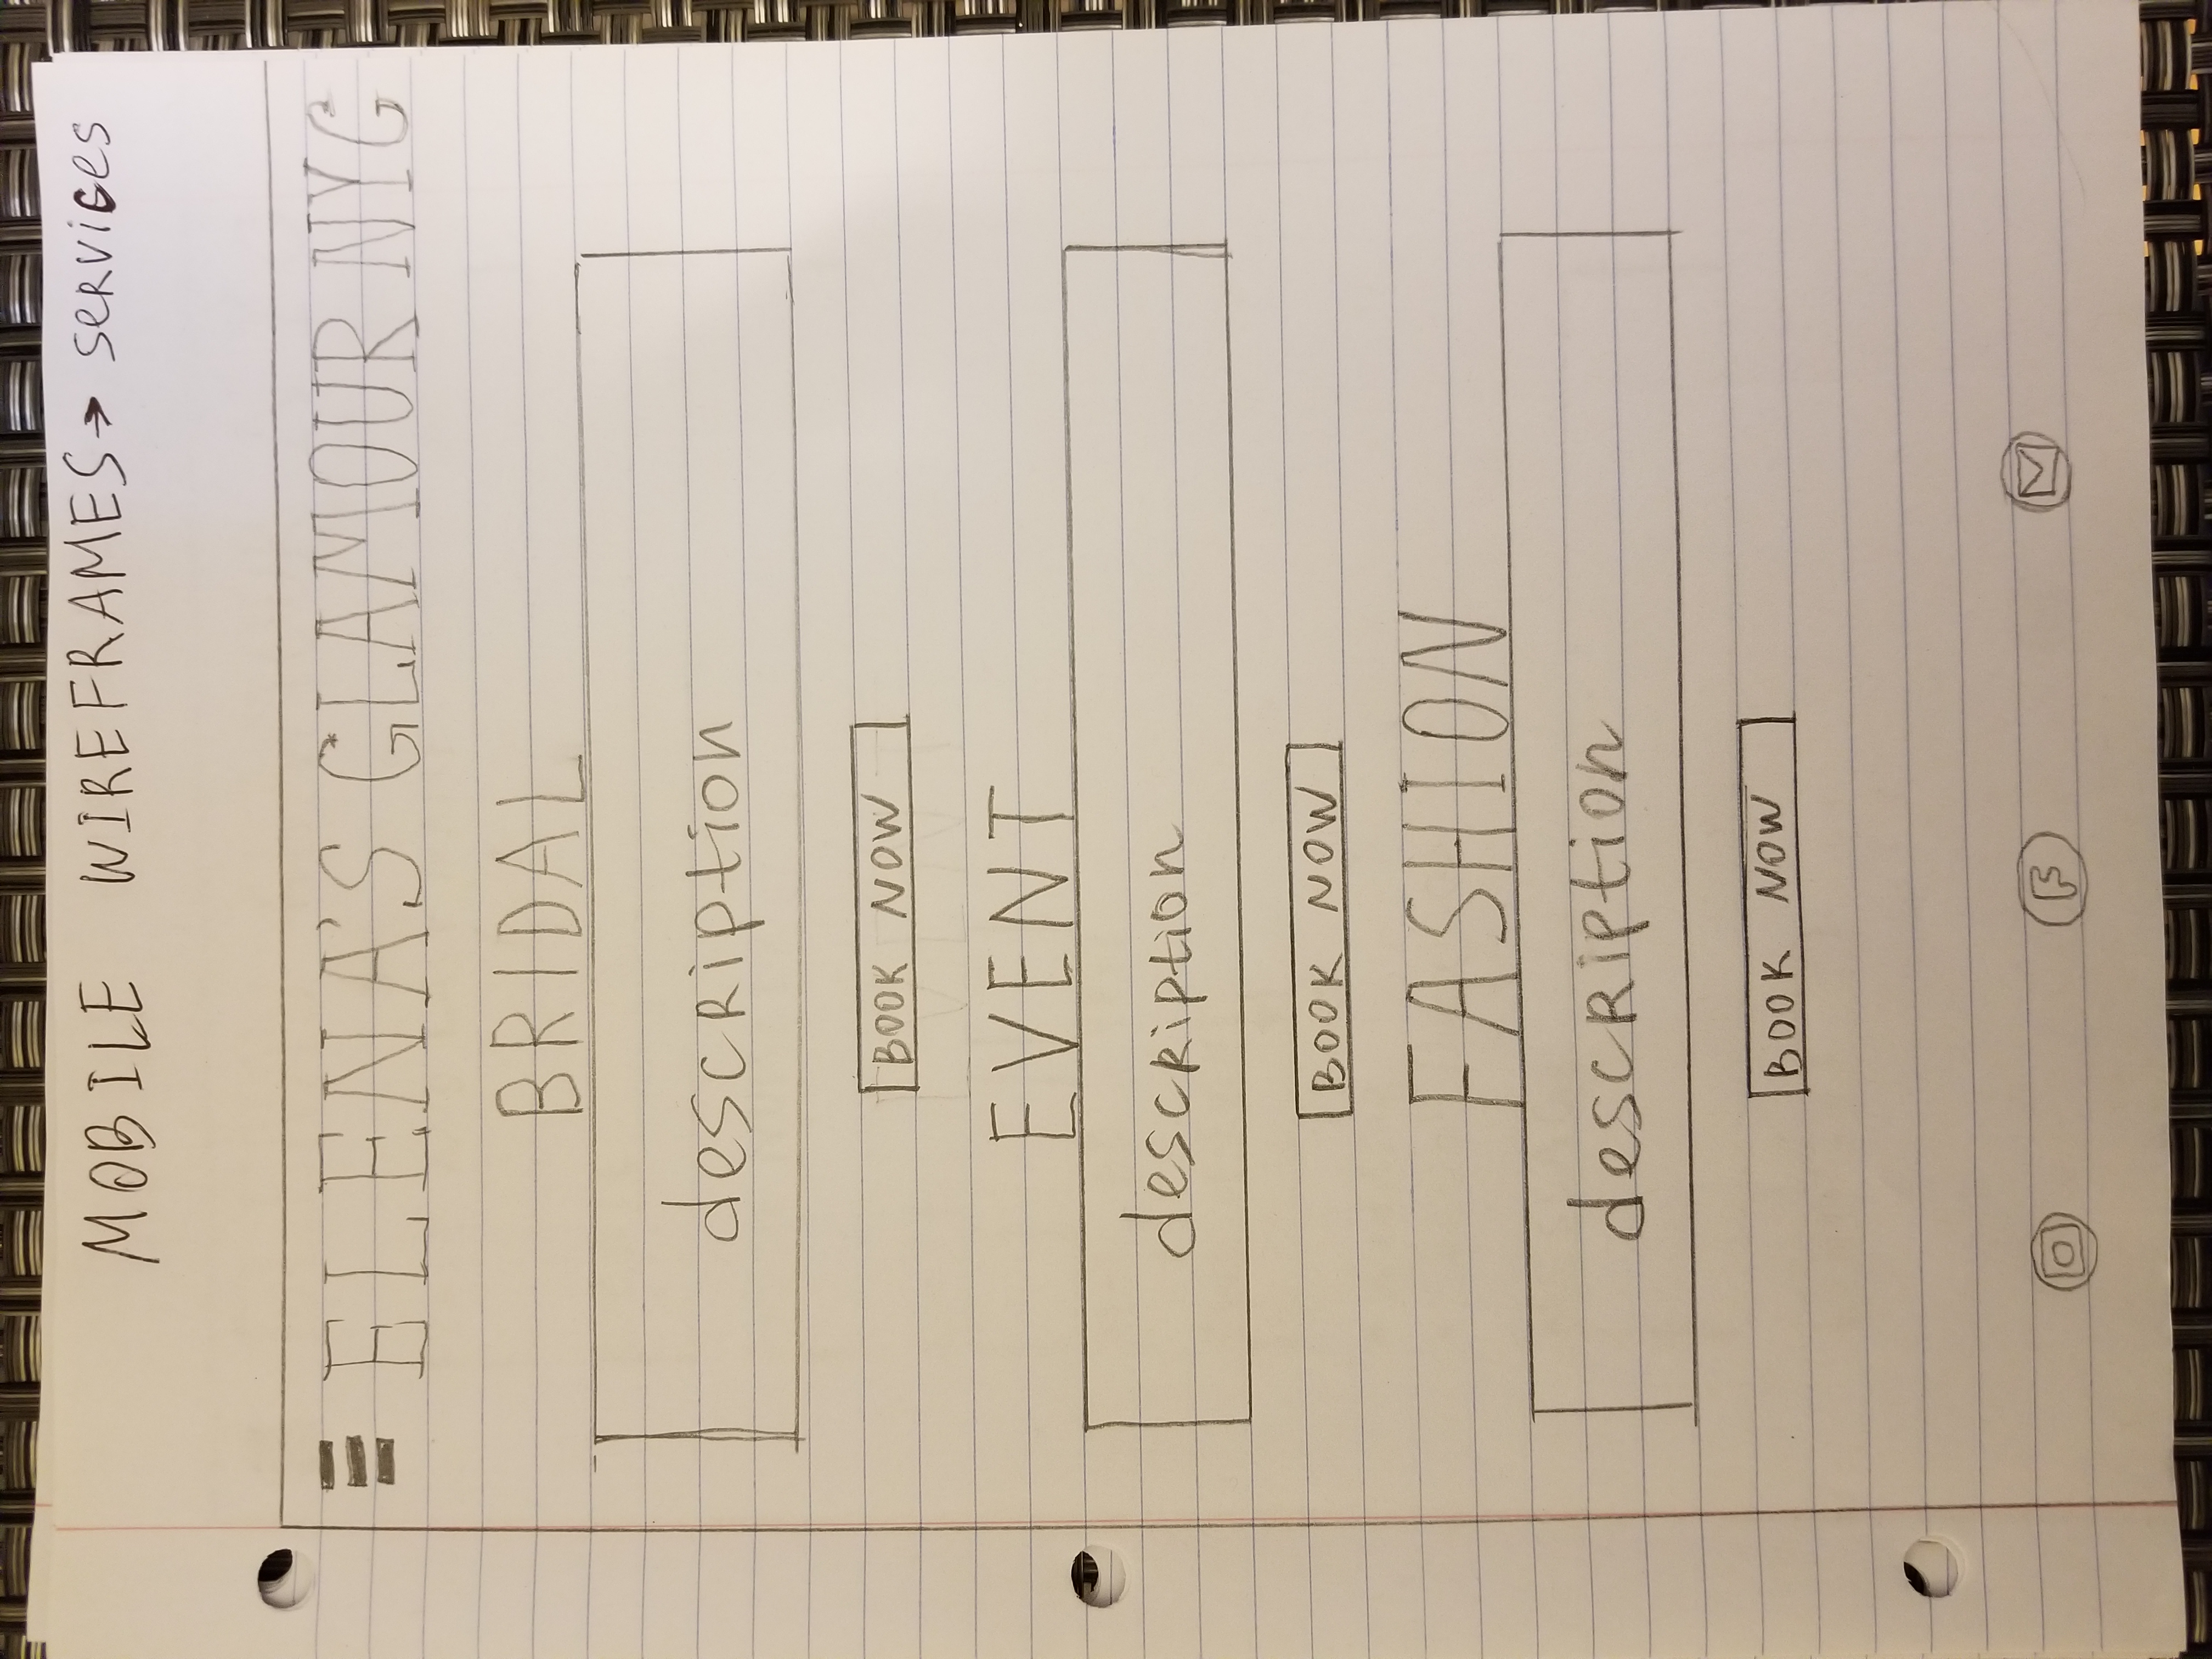 MOBILE WIREFRAMES → services
ELENA'S GLAMOUR NYC
BRIDAL
description
BOOK NOW
EVENT
EVENT
description
BOOK NOW
FASHION
description
BOOK NOW
F